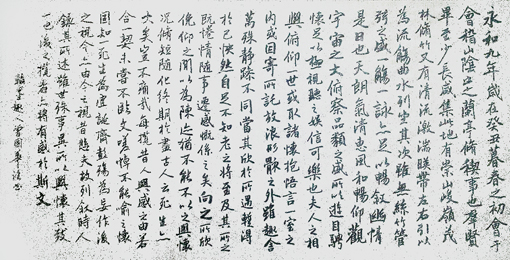 永和九年歲在癸丑暮春之初會于
會稽山陰之蘭亭脩稧事也群賢
畢至少長咸集此地有崇山峻嶺茂
林脩竹又有清流激湍暎帶左右引以
為流觴曲水列坐其次雖無絲竹管
弦之盛一觴一詠亦足以暢叙幽情
是日也天朗氣清惠風和暢仰觀
宇宙之大俯察品類之盛所以遊目騁
懷足以極視聽之娛信可樂也夫人之相
與俯仰一世或取諸懷抱悟言一室之
內或因寄所託放浪形骸之外雖趣舍
萬殊靜躁不同當其欣於所遇暫得
於己怏然自足不知老之將至及其所之
既惓情隨事遷感慨係之矣向之所欣
俛仰之間以為陳迹猶不能不以之興懷
況脩短隨化終期於盡古人云死生亦
大矣豈不痛哉每攬昔人興感之由若
合一契未嘗不臨文嗟悼不能喻之於懷
固知一死生為虛誕齊彭殤為妄作後
之視今亦由今之視昔悲夫故列叙時人
錄其所述雖世殊事異所以興懷其致
一也後之攬者亦將有感於斯文